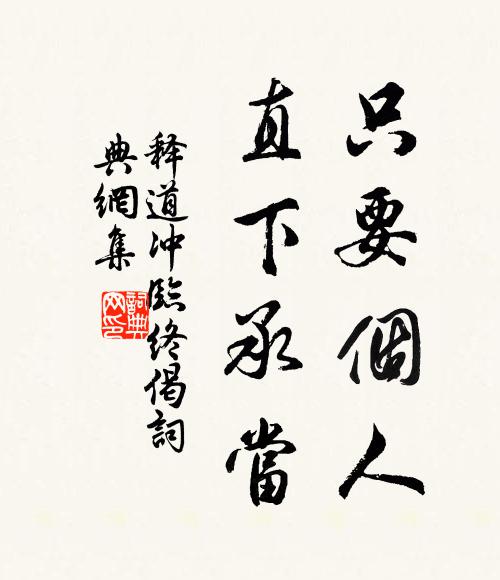 只要個人
直下承當
释道冲臨终偈詞
典網集
詞典
网印